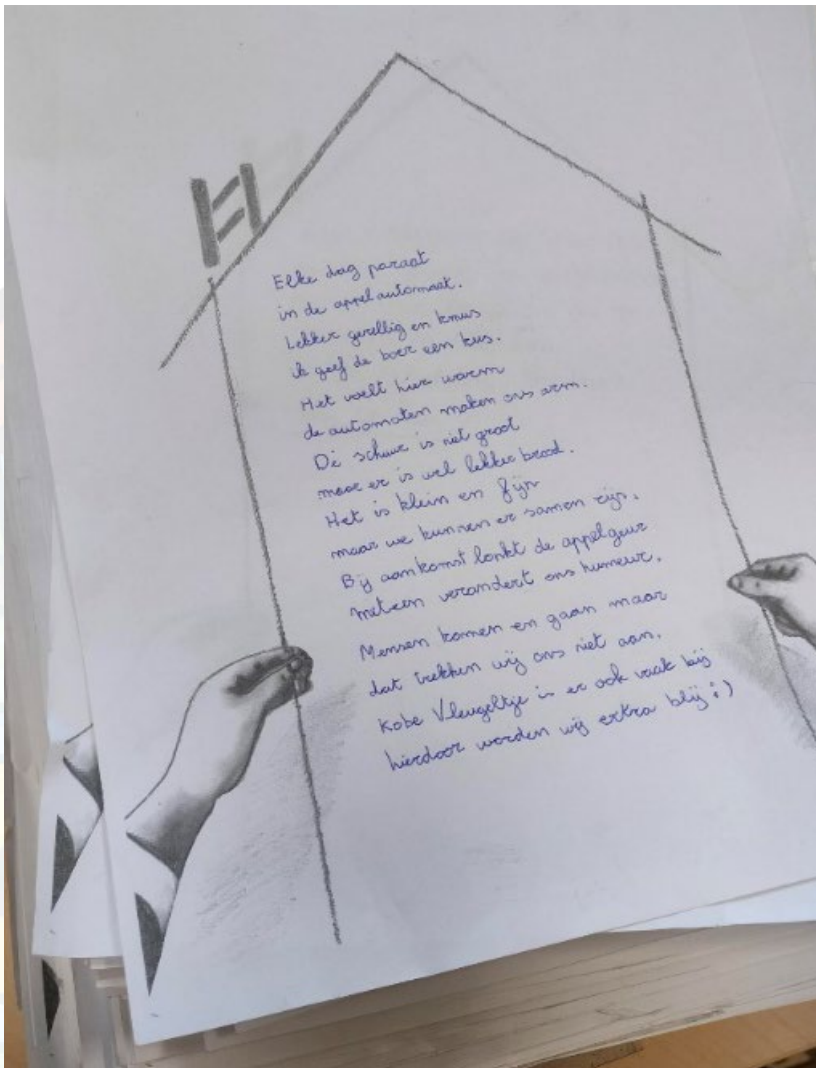 Elke dag paraat
in de appelautomaat.
Lekker gezellig en knus
ik geef de boer een kus.
Het voelt hier warm
de automaten maken ons arm.
De schuur is niet groot
maar er is wel lekker brood.
Het is klein en fijn
maar we kunnen er samen zijn.
Bij aankomst lonkt de appelgeur
meteen verandert ons humeur.
Mensen komen en gaan maar
dat trekken wij ons niet aan.
Kobe Vleugeltje is er ook vaak bij
hierdoor worden wij extra blij :)